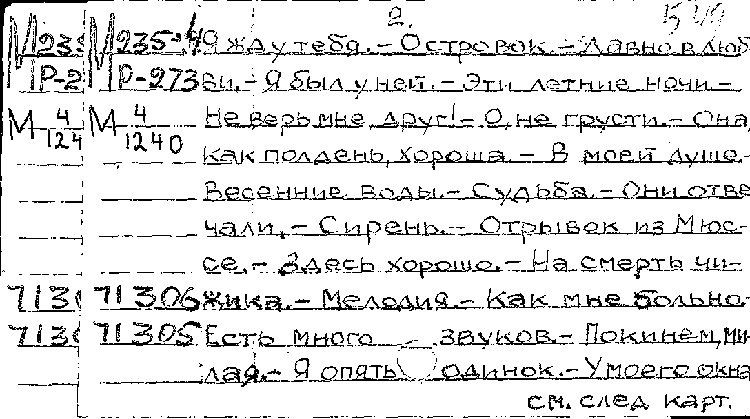 2. 549
М 235 М 235-4 Я жду тебя. – Островок. – Давно в люб
Р-2 Р-273 ви. – Я был у ней. – Эти летние ночи –
М 4/124 М 4/1240 Не верь мне друг! – О, не грусти. – Она,
как полдень, хороша. – В моей душе. –
Весенние воды. – Судьба. – Они отве
чали. – Сирень. – Отрывок из Мюс-
се. – Здесь хорошо. – На смерть чи-
7130 71306 жика. – Мелодия. – Как мне больно.
7130 71305 Есть много звуков. – Покинем, ми
лая. – Я опять одинок. – У моего окна
см. след карт.